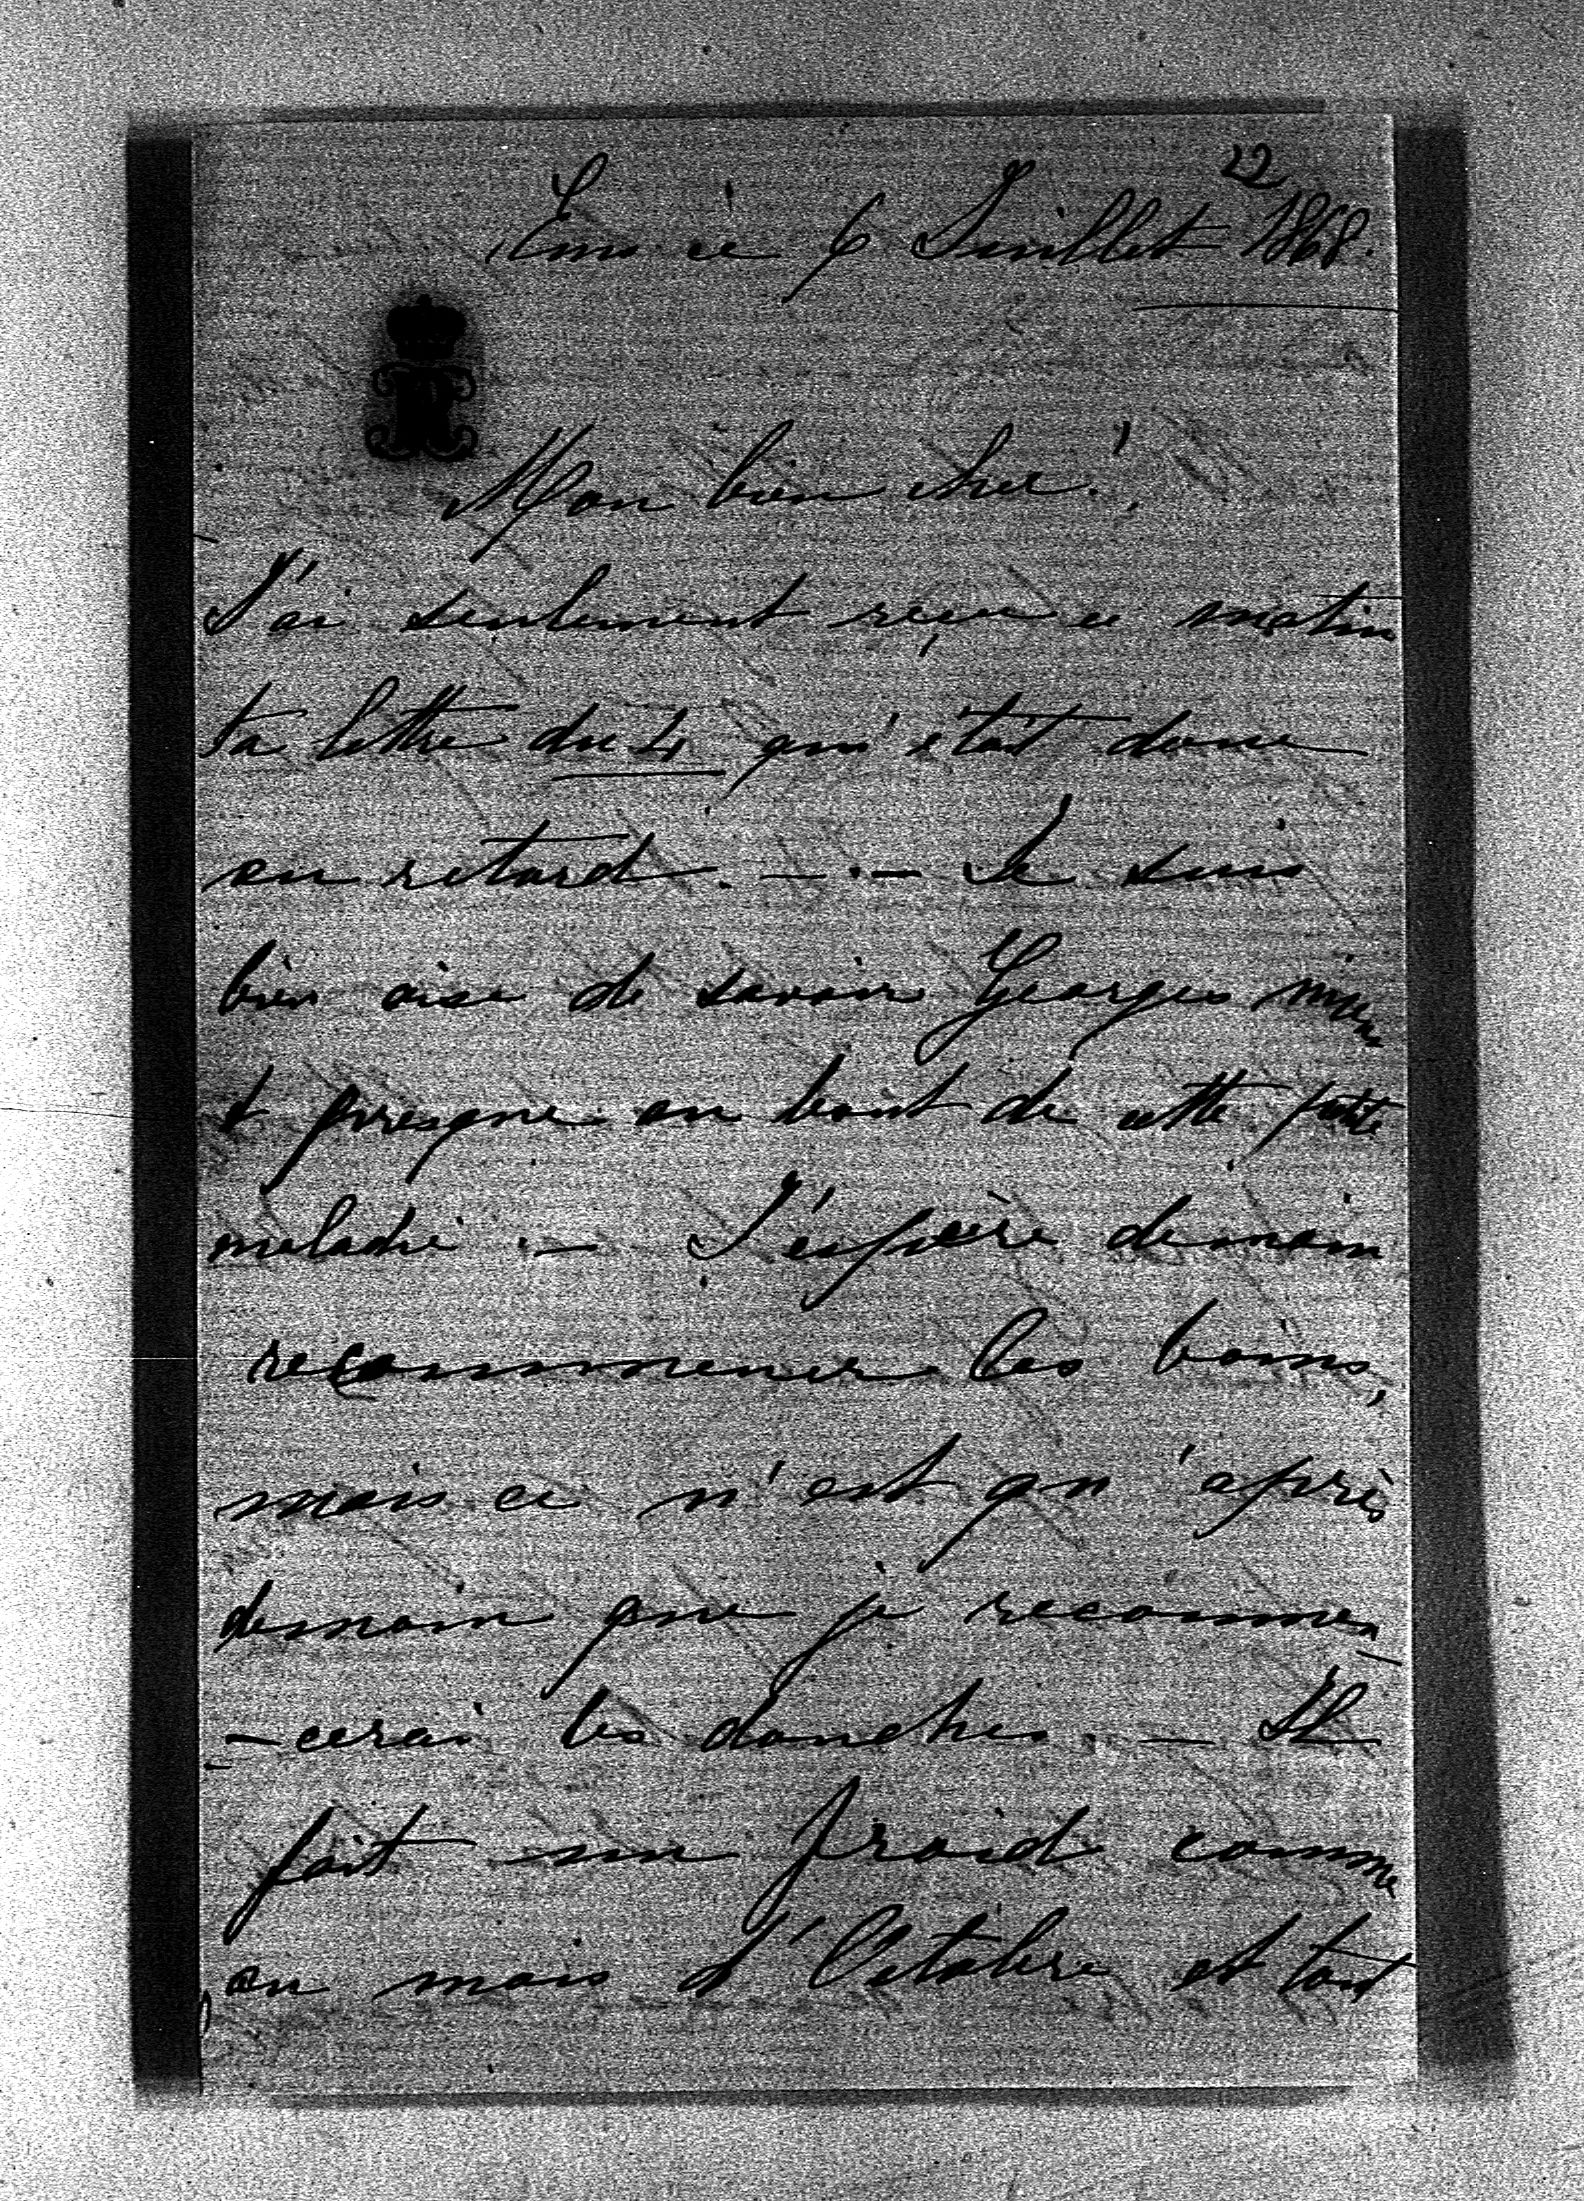 22
Ems ce 6 Juillet 1868.
Mon bien cher!,
J'ai seulement reçu ce matin
ta lettre du 4 qui était donc
en retard. — . — Je suis
bien aise de savoir Georges mieux
et presque au bout de cette petite
maladie. — J'espère demain
recommencer les bains,
mais ce n'est qu'après
demain que je recommen-
-cerai les douches. — Il
fait un froid comme
au mois d'Octobre et tout